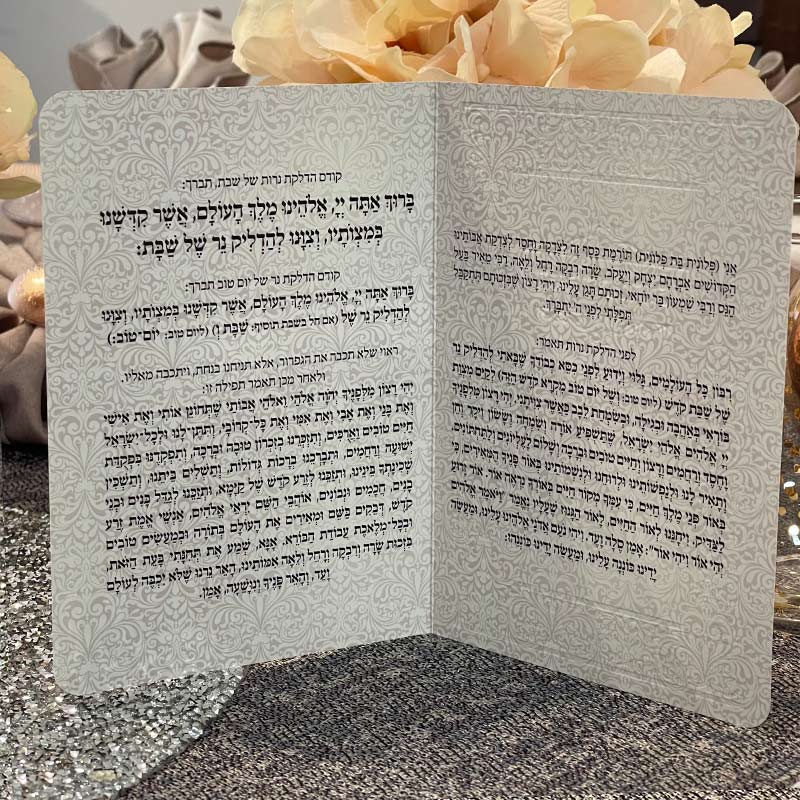 אֲנִי (פְּלוֹנִית בַּת פְּלוֹנִית) תּוֹרֶמֶת כֶּסֶף זֶה לִצְדָקָה וָחֶסֶד לְצִדְקַת אֲבוֹתֵינוּ
הַקְּדוֹשִׁים אַבְרָהָם יִצְחָק וְיַעֲקֹב, שָׂרָה רִבְקָה רָחֵל וְלֵאָה, רַבִּי מֵאִיר בַּעַל
הַנֵּס וְרַבִּי שִׁמְעוֹן בַּר יוֹחַאי, זְכוּתָם תָּגֵן עָלֵינוּ, וִיהִי רָצוֹן שֶׁבִּזְכוּתָם תִּתְקַבֵּל
תְּפִלָּתִי לִפְנֵי ה' יִתְבָּרַךְ.
לפני הדלקת נרות תאמר:
רִבּוֹן כָּל הָעוֹלָמִים, גָּלוּי וְיָדוּעַ לִפְנֵי כִּסֵּא כְבוֹדֶךָ שֶׁבָּאתִי לְהַדְלִיק נֵר
שֶׁל שַׁבַּת קֹדֶשׁ (ליום טוב: וְשֶׁל יוֹם טוֹב מִקְרָא קֹדֶשׁ הַזֶּה) לְקַיֵּם מִצְוַת
בּוֹרְאִי בְּאַהֲבָה וּבְגִילָה, וּבְשִׂמְחַת לֵבָב כַּאֲשֶׁר צִוִּיתַנִי, יְהִי רָצוֹן מִלְּפָנֶיךָ
יְיָ אֱלֹהַי וֵאלֹהֵי יִשְׂרָאֵל, שֶׁתַּשְׁפִּיעַ אוֹרָה וְשִׂמְחָה וְשָׂשׂוֹן וִיקָר וְחֵן
וָחֶסֶד וְרַחֲמִים וְרָצוֹן וְחַיִּים טוֹבִים וּבְרָכָה וְשָׁלוֹם לָעֶלְיוֹנִים וְלַתַּחְתּוֹנִים,
וְתָאִיר לָנוּ וּלְנַפְשׁוֹתֵינוּ וּלְרוּחֵנוּ וּלְנִשְׁמוֹתֵינוּ בְּאוֹר פָּנֶיךָ הַמְּאִירִים, כִּי
בְּאוֹר פְּנֵי מֶלֶךְ חַיִּים, כִּי עִמְּךָ מְקוֹר חַיִּים בְּאוֹרְךָ נִרְאֶה אוֹר, אוֹר זָרוּעַ
לַצַּדִּיק, וִיחָנֵּנוּ לְאוֹר הַחַיִּים, לְאוֹר הַגָּנוּז שֶׁעָלָיו נֶאֱמַר "וַיֹּאמֶר אֱלֹהִים
יְהִי אוֹר וַיְהִי אוֹר": אָמֵן סֶלָה וָעֶד. וִיהִי נֹעַם אֲדֹנָי אֱלֹהֵינוּ עָלֵינוּ, וּמַעֲשֵׂה
יָדֵינוּ כּוֹנְנָה עָלֵינוּ, וּמַעֲשֵׂה יָדֵינוּ כּוֹנְנֵהוּ:
קודם הדלקת נרות של שבת, תברך:
בָּרוּךְ אַתָּה יְיָ, אֱלֹהֵינוּ מֶלֶךְ הָעוֹלָם, אֲשֶׁר קִדְּשָׁנוּ
בְּמִצְוֹתָיו, וְצִוָּנוּ לְהַדְלִיק נֵר שֶׁל שַׁבָּת:
קודם הדלקת נר של יום טוב תברך:
בָּרוּךְ אַתָּה יְיָ, אֱלֹהֵינוּ מֶלֶךְ הָעוֹלָם, אֲשֶׁר קִדְּשָׁנוּ בְּמִצְוֹתָיו, וְצִוָּנוּ
לְהַדְלִיק נֵר שֶׁל (אם חל בשבת תוסיף: שַׁבָּת וְ) (ליום טוב: יוֹם-טוֹב:)
ראוי שלא תכבר את הגפרור, אלא תניחנו בנחת, ויתכבה מאליו.
ולאחר מכן תאמר תפילה זו:
יְהִי רָצוֹן מִלְּפָנֶיךָ יְהֹוָה אֱלֹהַי וֵאלֹהֵי אֲבוֹתַי שֶׁתְּחוֹנֵן אוֹתִי וְאֶת אִישִׁי
וְאֶת בָּנַי וְאֶת אָבִי וְאֶת אִמִּי וְאֶת כָּל-קְרוֹבַי, וְתִתֶּן-לָנוּ וּלְכָל-יִשְׂרָאֵל
חַיִּים טוֹבִים וַאֲרֻכִּים, וְתִזְכְּרֵנוּ בְּזִכְרוֹן טוֹבָה וּבְרָכָה, וְתִפְקְדֵנוּ בִּפְקֻדַּת
יְשׁוּעָה וְרַחֲמִים, וּתְבָרְכֵנוּ בְּרָכוֹת גְּדוֹלוֹת, וְתַשְׁלִים בֵּיתֵנוּ, וְתַשְׁכֵּין
שְׁכִינָתְךָ בֵּינֵינוּ, וּתְזַכֵּנוּ לְזֶרַע קֹדֶשׁ שֶׁל קַיָּמָא, וּתְזַכֵּנוּ לְגַדֵּל בָּנִים וּבְנֵי
בָנִים, חֲכָמִים וּנְבוֹנִים, אוֹהֲבֵי הַשֵּׁם יִרְאֵי אֱלֹהִים, אַנְשֵׁי אֱמֶת זֶרַע
קֹדֶשׁ, דְּבֵקִים בַּשֵּׁם וּמְאִירִים אֶת הָעוֹלָם בְּתוֹרָה וּבְמַעֲשִׂים טוֹבִים
וּבְכָל-מְלֶאכֶת עֲבוֹדַת הַבּוֹרֵא. אָנָּא, שְׁמַע אֶת תְּחִנָּתִי בָּעֵת הַזֹּאת,
בִּזְכוּת שָׂרָה וְרִבְקָה וְרָחֵל וְלֵאָה אִמּוֹתֵינוּ, הָאֵר נֵרֵנוּ שֶׁלֹּא יִכְבֶּה לְעוֹלָם
וָעֶד, וְהָאֵר פָּנֶיךָ וְנִוָּשֵׁעָה, אָמֵן.